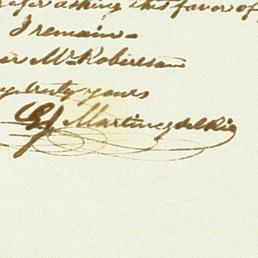 asking this favor of
I remain
Mr Robertson
truly yours
Martinez del Rio